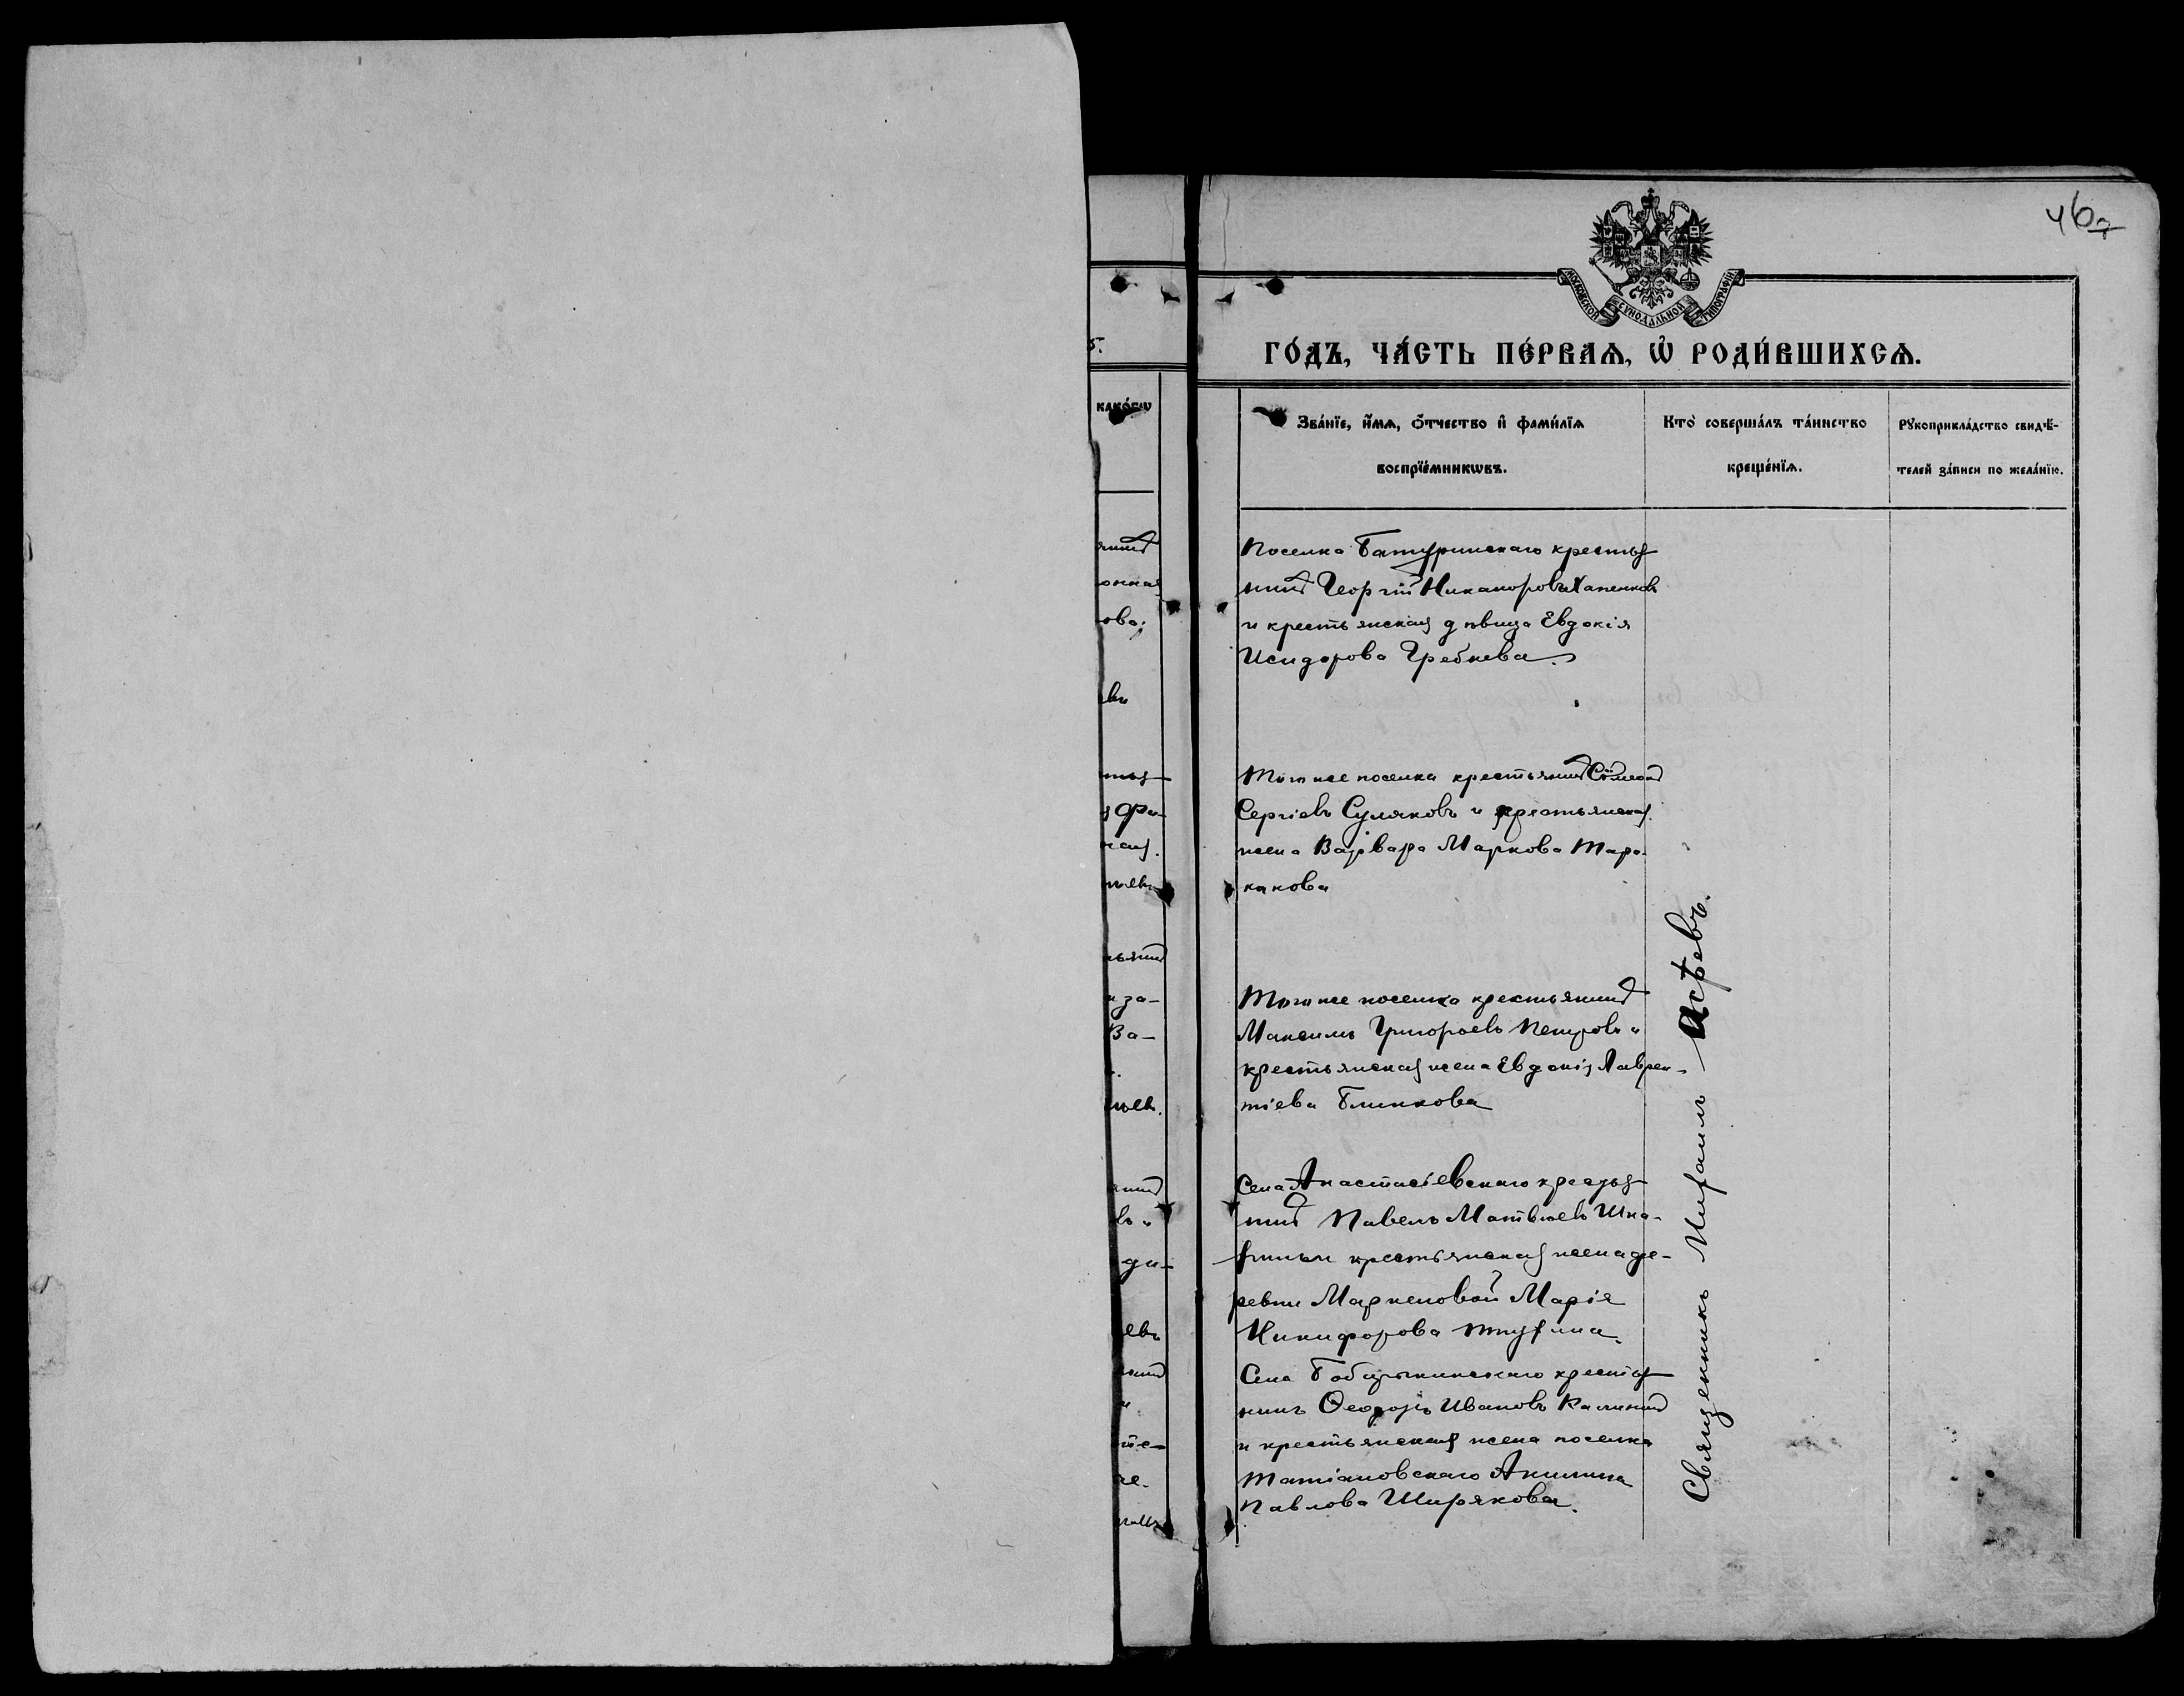 467
МОСКОВСКОЙ СѴНОДАЛЬНОЙ ТИПОГРАФІИ
ГО́ДЪ, ЧА́СТЬ ПЕ́РВАѦ, Ѽ РОДИ́ВШИХСѦ.
КАКО́ГѠ
Зва́нїе, и҆́мѧ, ѻ҆́тчество и҆ фами́лїѧ
воспрїе́мникѡвъ.
Кто̀ соверша́лъ та́инство
креще́нїѧ.
Рꙋкоприкла́дство свидѣ́-
телей за́писи по жела́нїю.
Поселка Батуринскаго крестья
нинъ Георгій Никаноровъ Хапенковъ
и крестьянская дѣвица Евдокія
Исидорова Гребнева.
Того же поселка крестьянинъ Сѵмеонъ
Сергіевъ Суляковъ и крестьянская
жена Варвара Маркова Тара-
канова
Того же поселка крестьянинъ
Максимъ Григорьевъ Петровъ и
крестьянская жена Евдокія Лаврен-
тіева Блинкова
Села Анастасіевскаго крестья
нинъ Павелъ Матвѣевъ
крестьянская жена де-
ревни Маркеловой Марія
Никифорова
Села крестья
нинъ Ѳеодоръ Ивановъ Калининъ
и крестьянская жена поселка
Татіановскаго Акилина
Павлова Ширякова.
Священникъ Михаилъ Агѣевъ.